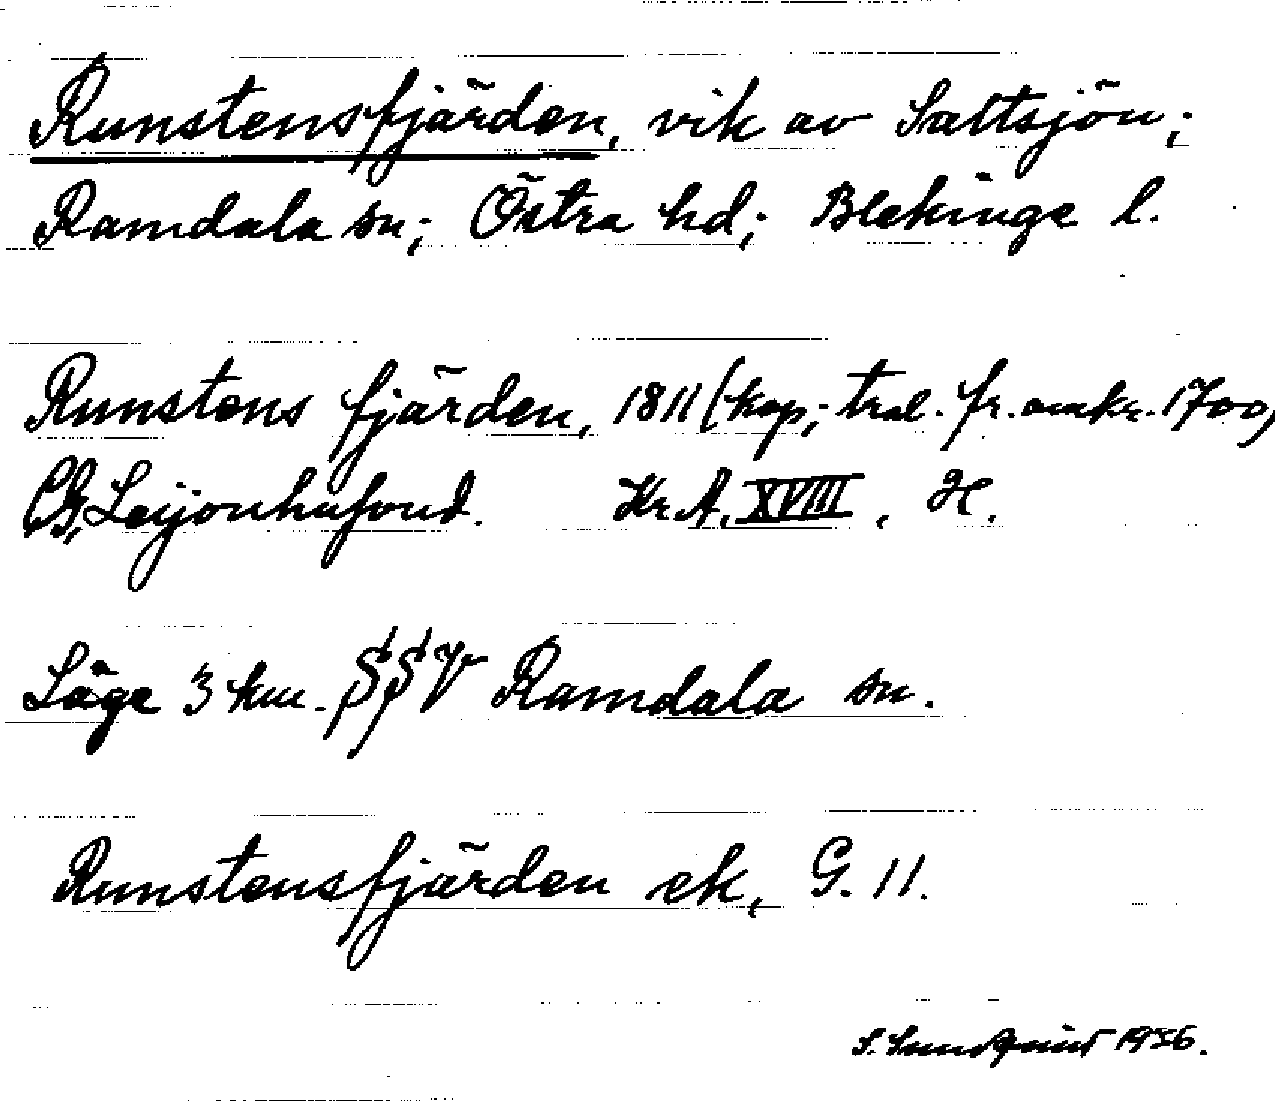 Runstensfjärden, vik av Saltsjön;
Ramdala sn; Östra hd; Blekinge l.
Runstens fjärden, 1811 (kop, trol. fr. omkr. 1700,
CG, Leijonhufvud. Kr A. XVIII, H.
Läge 3 km. SSV Ramdala sn.
Runstensfjärden ek, G. 11.
S. Sundquist 1936.